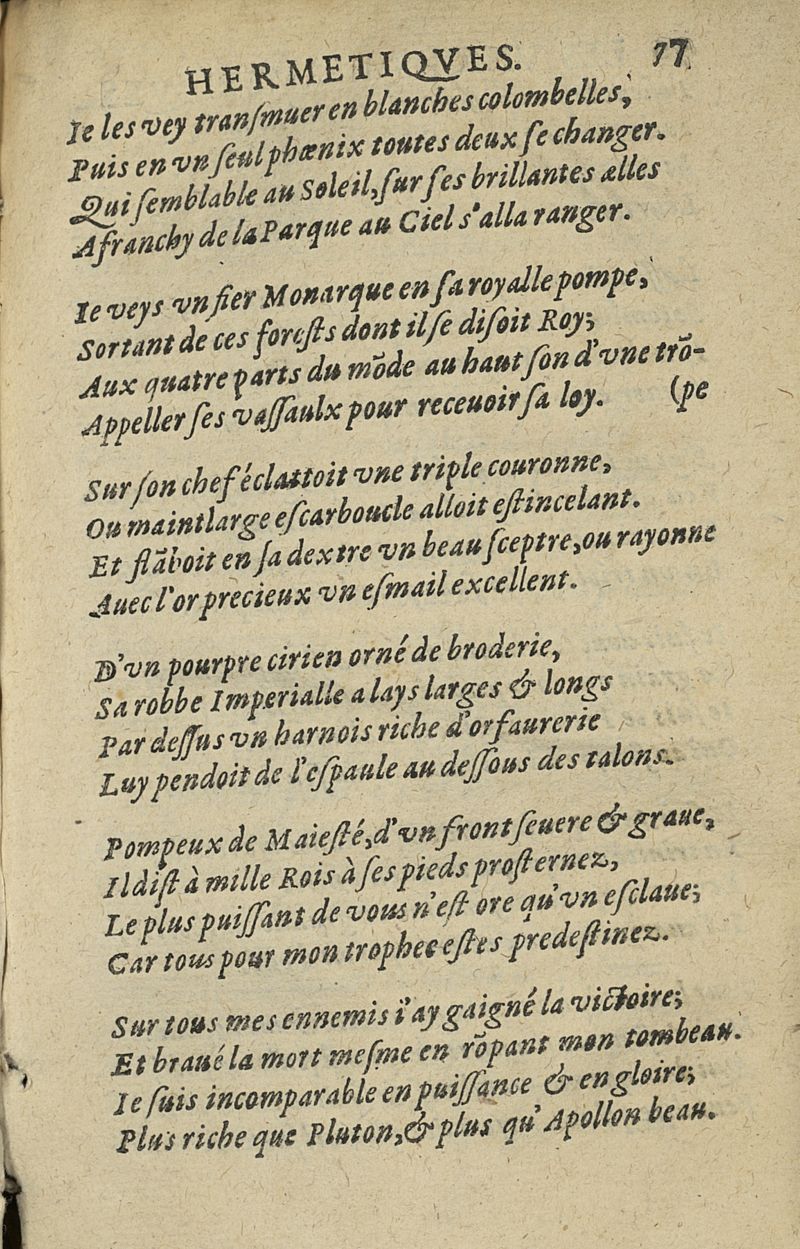 HERMETIQVES. 77
Ie les vey tranſmuer en blanches colombelles,
Puis en vn ſeul phœnix toutes deux ſe changer.
Qui ſemblable au Soleil, ſur ſes brillantes ælles
Afranchy de la Parque au Ciel s'alla ranger.
Ie veys vn fier Monarque en ſa royalle pompe,
Sortant de ces foreſts dont il ſe diſoit Roy;
Aux quatre parts du mõde au haut ſon d'vne trõ-
Appeller ſes vaſſaulx pour receuoir ſa loy. (pe
Sur ſon chef éclattoit vne triple couronne,
Ou maint large eſcarboucle alloit eſtincelant.
Et flãboit en ſa dextre vn beau ſceptre, ou rayonne
Auec l'or precieux vn eſmail excellent.
D'vn pourpre cirien orné de broderie,
Sa robbe Imperialle a lays larges & longs
Par deſſus vn harnois riche d'orfaurerie
Luy pendoit de l'eſpaule au deſſous des talons.
Pompeux de Maieſté, d'vn front ſeuere & graue,
Il diſt à mille Rois à ſes pieds proſternez,
Le plus puiſſant de vous n'eſt ore qu'vn eſclaue;
Car tous pour mon trophee eſtes predeſtinez.
Sur tous mes ennemis i'ay gaigné la victoire;
Et braué la mort meſme en rõpant mon tombeau.
Ie ſuis incomparable en puiſſance & en gloire;
Plus riche que Pluton, & plus qu'Apollon beau.